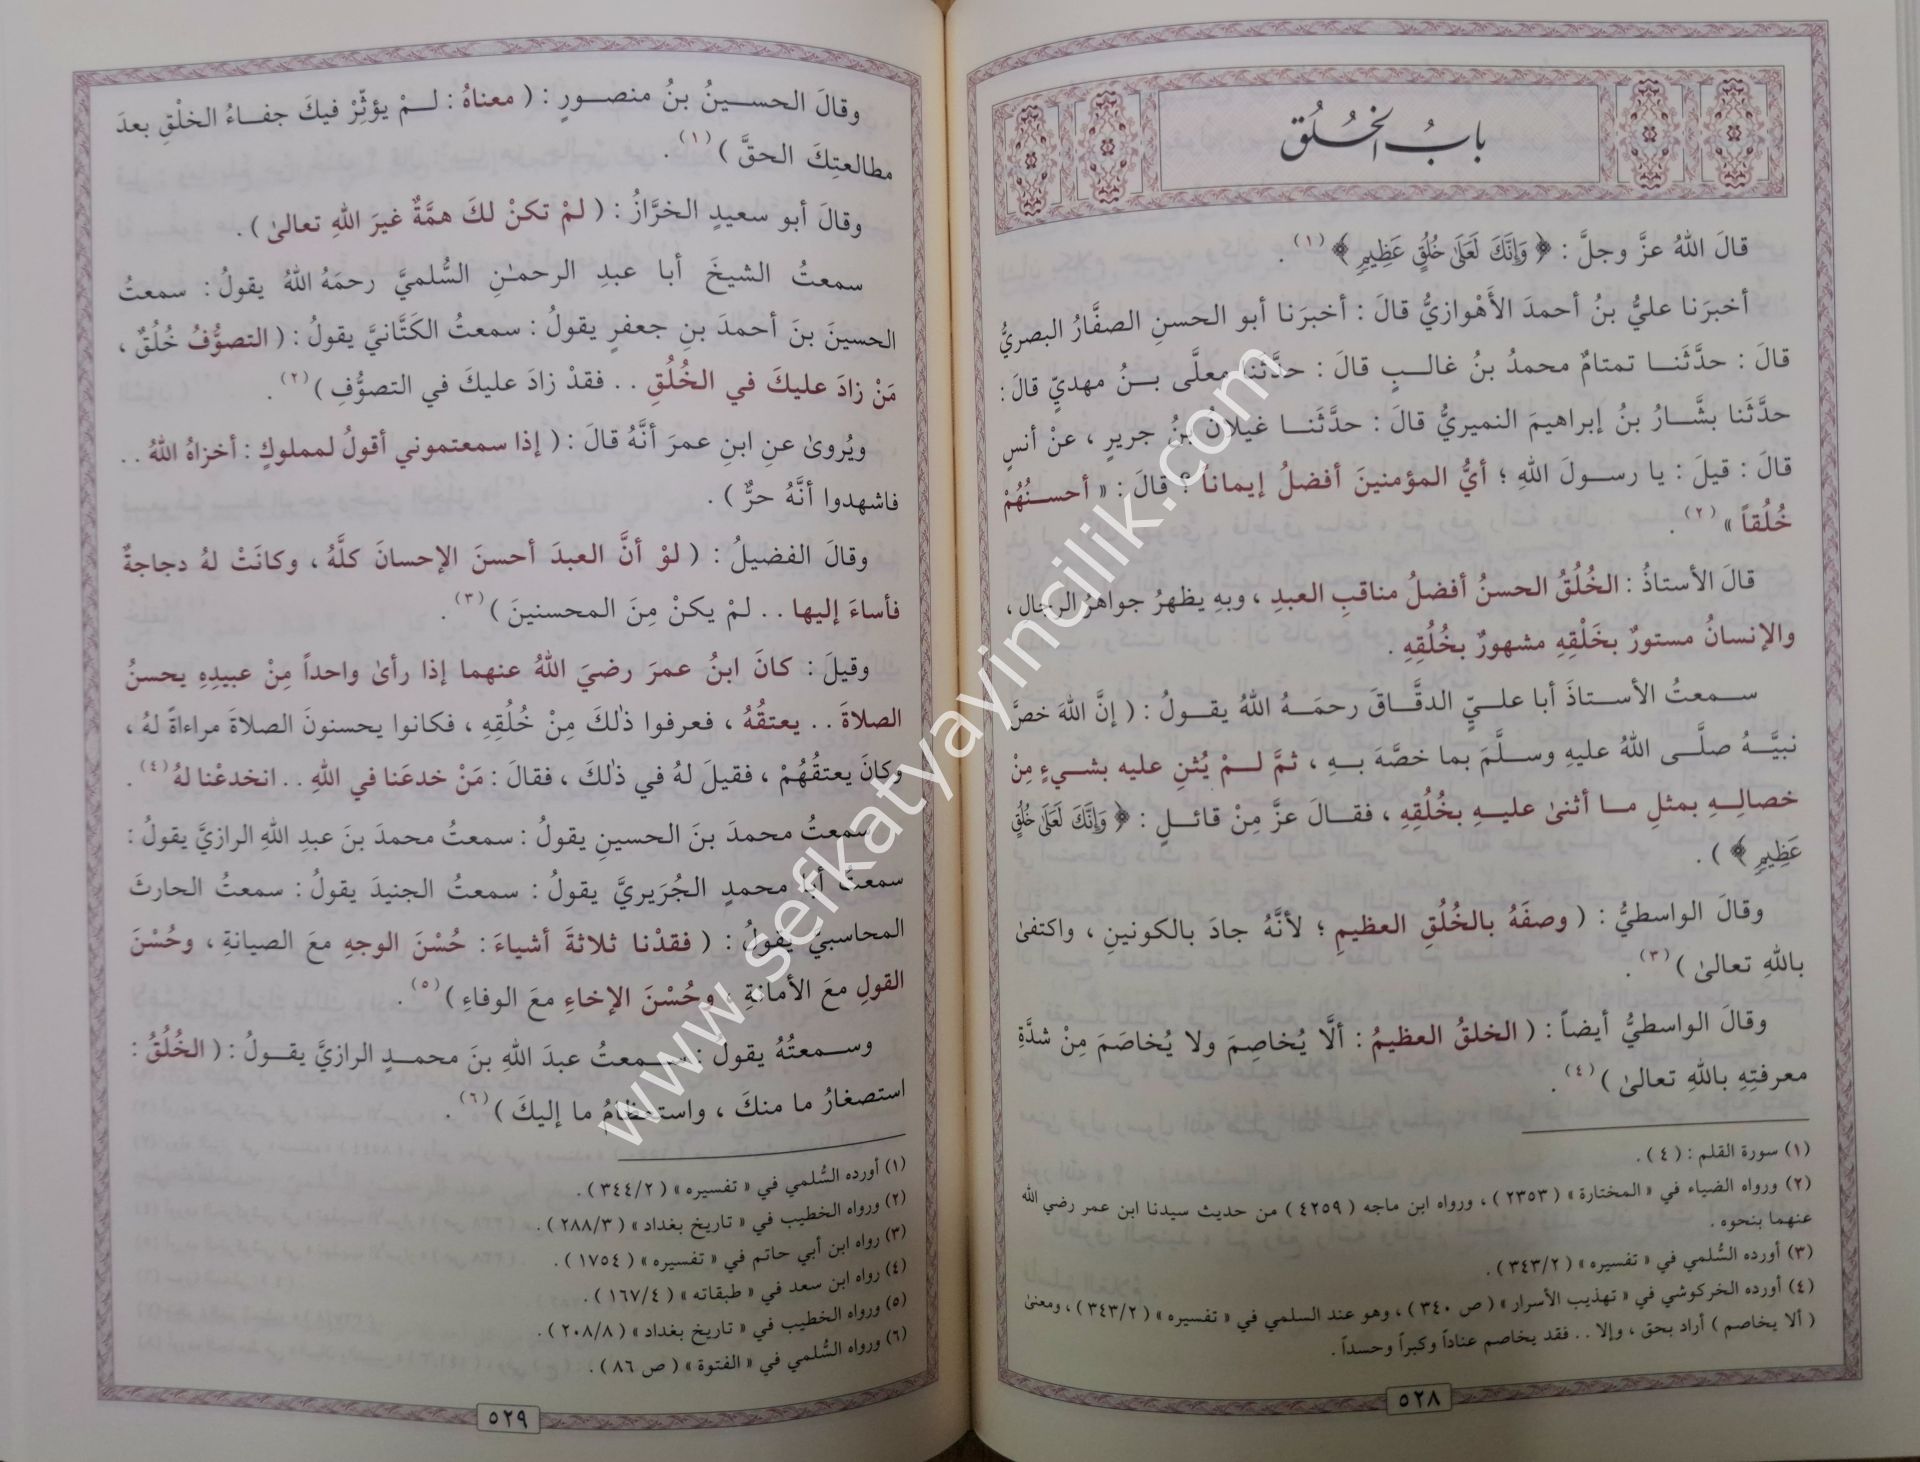 بابُ الخُلُق
قالَ اللهُ عزَّ وجلَّ : ﴿ وَإِنَّكَ لَعَلَىٰ خُلُقٍ عَظِيمٍ ﴾ (١) .
أخبرَنا عليُّ بنُ أحمدَ الأَهْوازيُّ قالَ : أخبرَنا أبو الحسنِ الصفَّارُ البصريُّ
قالَ : حدَّثَنا تمتامٌ محمدُ بنُ غالبٍ قالَ : حدَّثَنا معلَّى بنُ مهديٍّ قالَ :
حدَّثَنا بشَّارُ بنُ إبراهيمَ النميريُّ قالَ : حدَّثَنا غيلانُ بنُ جريرٍ ، عنْ أنسٍ
قالَ : قيلَ : يا رسولَ اللهِ ؛ أيُّ المؤمنينَ أفضلُ إيماناً ؟ قالَ : « أحسنُهُمْ
خُلُقاً » (٢) .
قالَ الأستاذُ : الخُلُقُ الحسنُ أفضلُ مناقبِ العبدِ ، وبهِ يظهرُ جواهرُ الرجالِ ،
والإنسانُ مستورٌ بخَلْقِهِ مشهورٌ بخُلُقِهِ .
سمعتُ الأستاذَ أبا عليٍّ الدقَّاقَ رحمَهُ اللهُ يقولُ : ( إنَّ اللهَ خصَّ
نبيَّهُ صلَّى اللهُ عليهِ وسلَّمَ بما خصَّهُ بهِ ، ثمَّ لمْ يُثنِ عليه بشيءٍ مِنْ
خصالِهِ بمثلِ ما أثنىٰ عليهِ بخُلُقِهِ ، فقالَ عزَّ مِنْ قائلٍ : ﴿ وَإِنَّكَ لَعَلَىٰ خُلُقٍ
عَظِيمٍ ﴾ ) .
وقالَ الواسطيُّ : ( وصفَهُ بالخُلُقِ العظيمِ ؛ لأنَّهُ جادَ بالكونينِ ، واكتفىٰ
باللهِ تعالىٰ ) (٣) .
وقالَ الواسطيُّ أيضاً : ( الخلقُ العظيمُ : ألَّا يُخاصِمَ ولا يُخاصَمَ مِنْ شدَّةِ
معرفتِهِ باللهِ تعالىٰ ) (٤) .
(١) سورة القلم : ( ٤ ) .
(٢) ورواه الضياء في « المختارة » ( ٢٣٥٣ ) ، ورواه ابن ماجه ( ٤٢٥٩ ) من حديث سيدنا ابن عمر رضي الله
عنهما بنحوه .
(٣) أورده السُّلمي في « تفسيره » ( ٣٤٣/٢ ) .
(٤) أورده الخركوشي في « تهذيب الأسرار » ( ص ٣٤٠ ) ، وهو عند السلمي في « تفسيره » ( ٣٤٣/٢ ) ، ومعنىٰ
( ألا يخاصم ) أراد بحق ، وإلا .. فقد يخاصم عناداً وكبراً وحسداً .
٥٢٨
وقالَ الحسينُ بنُ منصورٍ : ( معناهُ : لمْ يؤثِّرْ فيكَ جفاءُ الخلْقِ بعدَ
مطالعتِكَ الحقَّ ) (١) .
وقالَ أبو سعيدٍ الخرَّازُ : ( لمْ تكنْ لكَ همَّةٌ غيرَ اللهِ تعالىٰ ) .
سمعتُ الشيخَ أبا عبدِ الرحمٰنِ السُّلميَّ رحمَهُ اللهُ يقولُ : سمعتُ
الحسينَ بنَ أحمدَ بنِ جعفرٍ يقولُ : سمعتُ الكَتَّانيَّ يقولُ : ( التصوُّفُ خُلُقٌ ،
مَنْ زادَ عليكَ في الخُلُقِ .. فقدْ زادَ عليكَ في التصوُّفِ ) (٢) .
ويُروىٰ عنِ ابنِ عمرَ أنَّهُ قالَ : ( إذا سمعتموني أقولُ لمملوكٍ : أخزاهُ اللهُ ..
فاشهدوا أنَّهُ حرٌّ ) .
وقالَ الفضيلُ : ( لوْ أنَّ العبدَ أحسنَ الإحسانَ كلَّهُ ، وكانَتْ لهُ دجاجةٌ
فأساءَ إليها .. لمْ يكنْ مِنَ المحسنينَ ) (٣) .
وقيلَ : كانَ ابنُ عمرَ رضيَ اللهُ عنهما إذا رأىٰ واحداً مِنْ عبيدِهِ يحسنُ
الصلاةَ .. يعتقُهُ ، فعرفوا ذٰلكَ مِنْ خُلُقِهِ ، فكانوا يحسنونَ الصلاةَ مراءاةً لهُ ،
وكانَ يعتقُهُمْ ، فقيلَ لهُ في ذٰلكَ ، فقالَ : مَنْ خدعَنا في اللهِ .. انخدعْنا لهُ (٤) .
سمعتُ محمدَ بنَ الحسينِ يقولُ : سمعتُ محمدَ بنَ عبدِ اللهِ الرازيَّ يقولُ :
سمعتُ أبا محمدٍ الجُرَيريَّ يقولُ : سمعتُ الجنيدَ يقولُ : سمعتُ الحارثَ
المحاسبيَّ يقولُ : ( فقدْنا ثلاثةَ أشياءَ : حُسْنَ الوجهِ معَ الصيانةِ ، وحُسْنَ
القولِ معَ الأمانةِ ، وحُسْنَ الإخاءِ معَ الوفاءِ ) (٥) .
وسمعتُهُ يقولُ : سمعتُ عبدَ اللهِ بنَ محمدٍ الرازيَّ يقولُ : ( الخُلُقُ :
استصغارُ ما منكَ ، واستعظامُ ما إليكَ ) (٦) .
(١) أورده السُّلمي في « تفسيره » ( ٣٤٤/٢ ) .
(٢) ورواه الخطيب في « تاريخ بغداد » ( ٢٨٨/٣ ) .
(٣) رواه ابن أبي حاتم في « تفسيره » ( ١٧٥٤ ) .
(٤) رواه ابن سعد في « طبقاته » ( ١٦٧/٤ ) .
(٥) ورواه الخطيب في « تاريخ بغداد » ( ٢٠٨/٨ ) .
(٦) ورواه السُّلمي في « الفتوة » ( ص ٨٦ ) .
٥٢٩
www.sefkatyayincilik.com